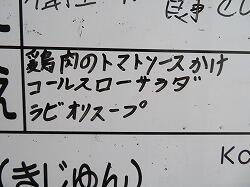 鶏肉のトマトソースかけ
コールスローサラダ
ラビオリスープ
Ko
(きじゅん)